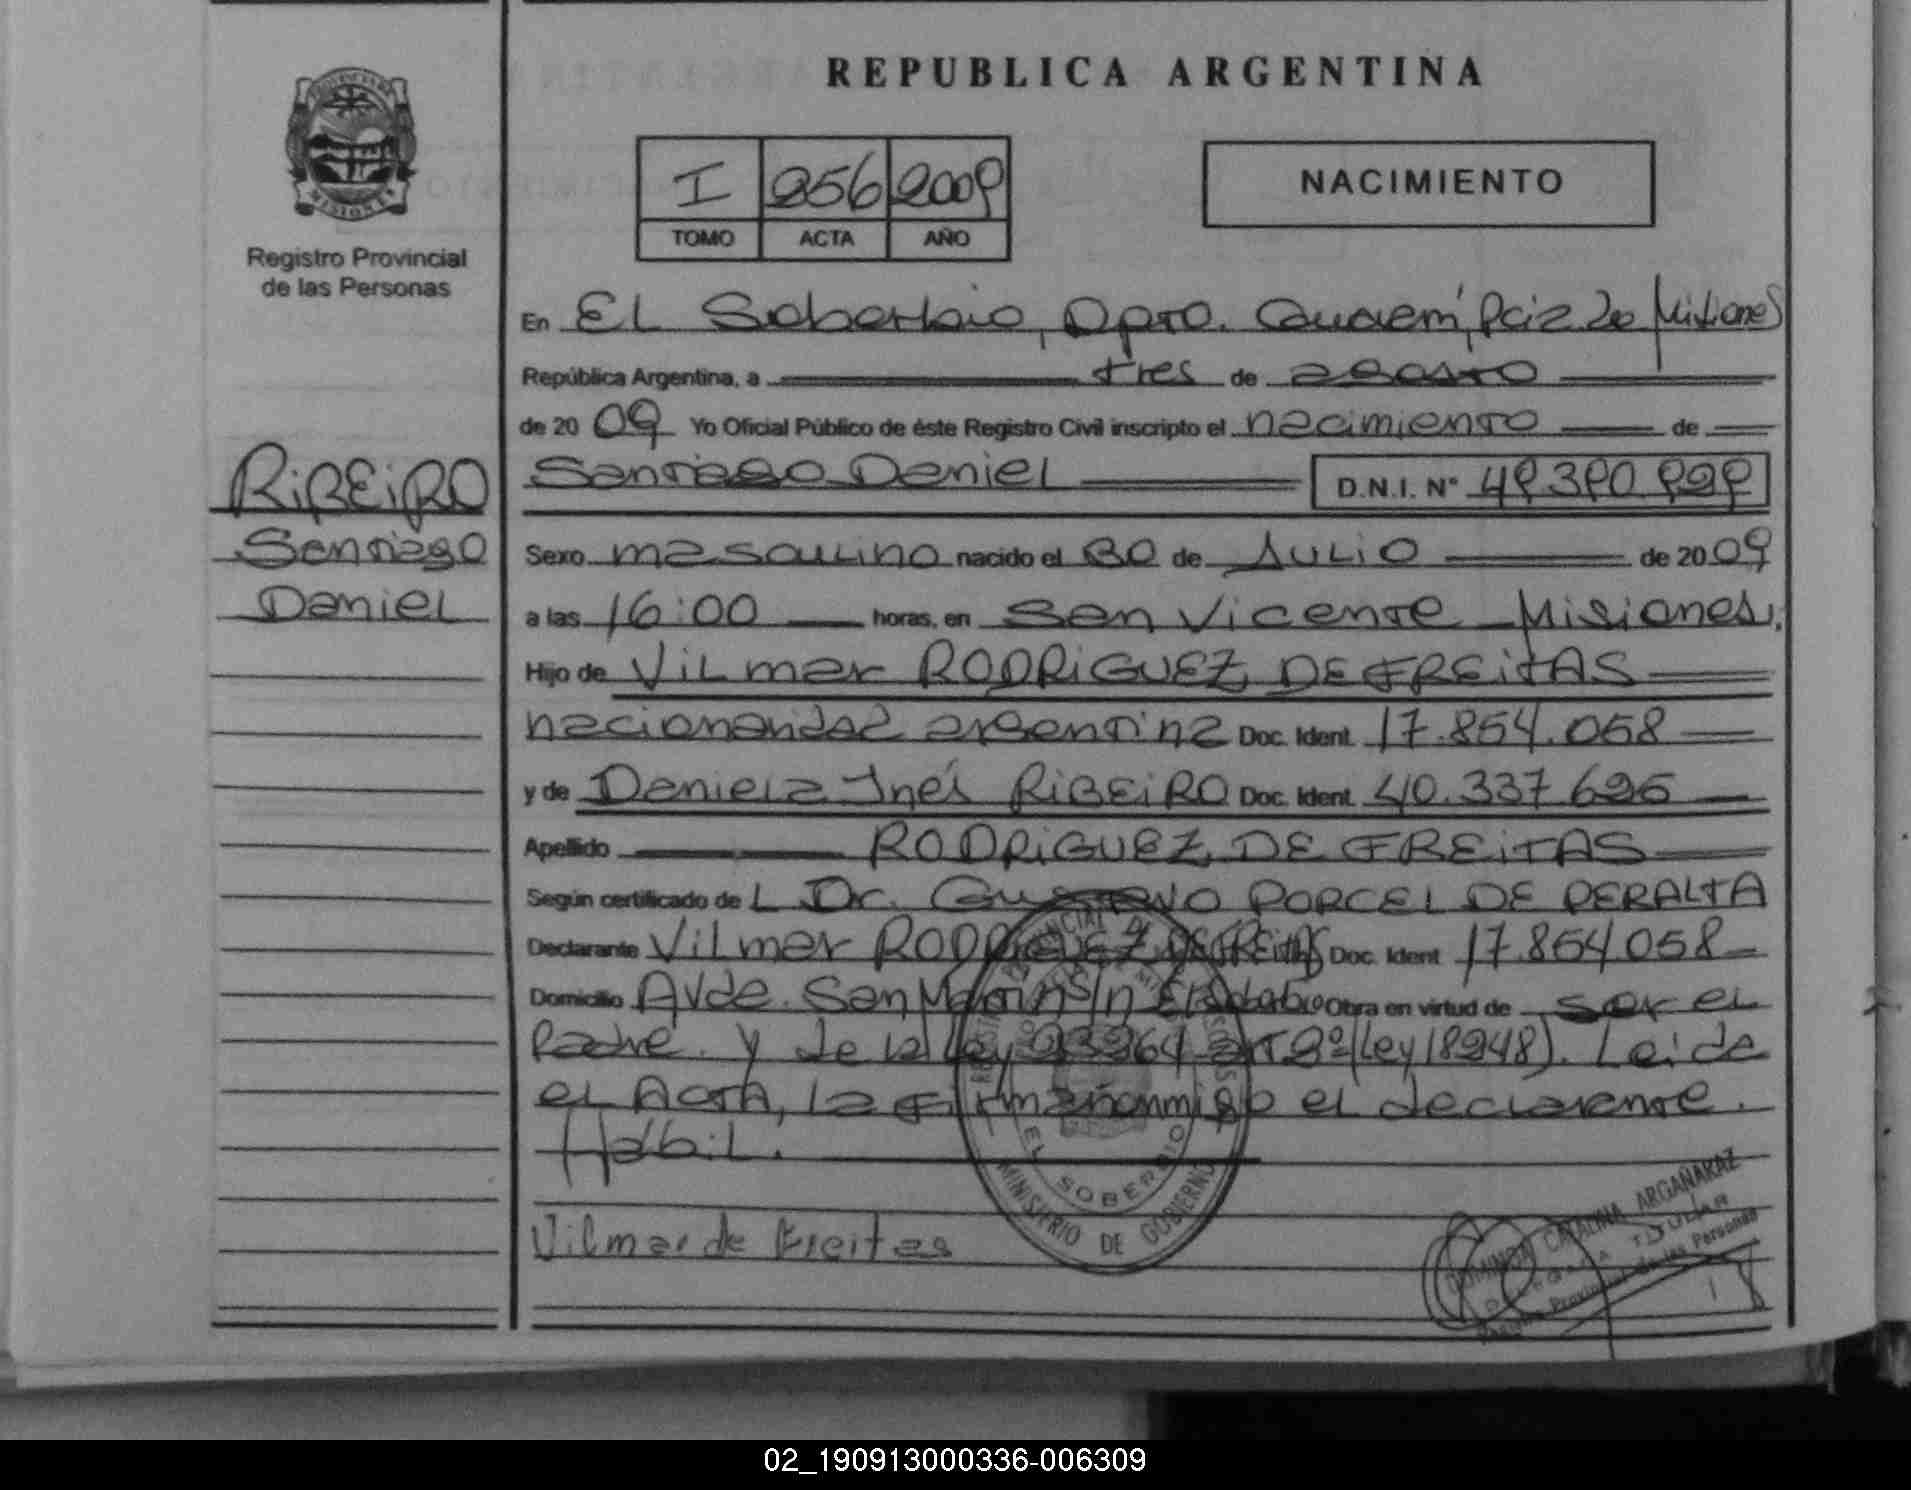 REPUBLICA ARGENTINA
PROVINCIA DE
MISIONES
I 256 2009
TOMO ACTA AÑO
NACIMIENTO
Registro Provincial
de las Personas
En EL Soberbio, Dpto. Guaraní, Pcia de Misiones
República Argentina, a tres de agosto
de 20 09 Yo Oficial Público de éste Registro Civil inscripto el nacimiento de
RIBEIRO
Santiago
Daniel
Santiago Daniel D.N.I. N° 49390929
Sexo masculino nacido el 30 de JULIO de 20 09
a las 16:00 horas, en San Vicente Misiones.
Hijo de Vilmar RODRIGUEZ DE FREITAS
nacionanidad argentina Doc. Ident. 17.854.058
y de Daniela Inés RIBEIRO Doc. Ident. 40.337.626
Apellido RODRIGUEZ DE FREITAS
Según certificado de L Dr. Gustavo PORCEL DE PERALTA
Declarante Vilmar RODRIGUEZ DE FREITAS Doc. Ident 17.854058
Domicilio Avda. San Martín s/n El Soberbio Obra en virtud de ser el
Padre. y de la Ley 23264 art 2º(Ley 18248). Leida
el ACTA, la firman conmigo el declarante.
Hábil.
Vilmar de Freitas
EL SOBERBIO
MINISTERIO DE GOBIERNO
CATALINA ARGAÑARAZ
TITULAR
Registro Provincial de las Personas
02_190913000336-006309